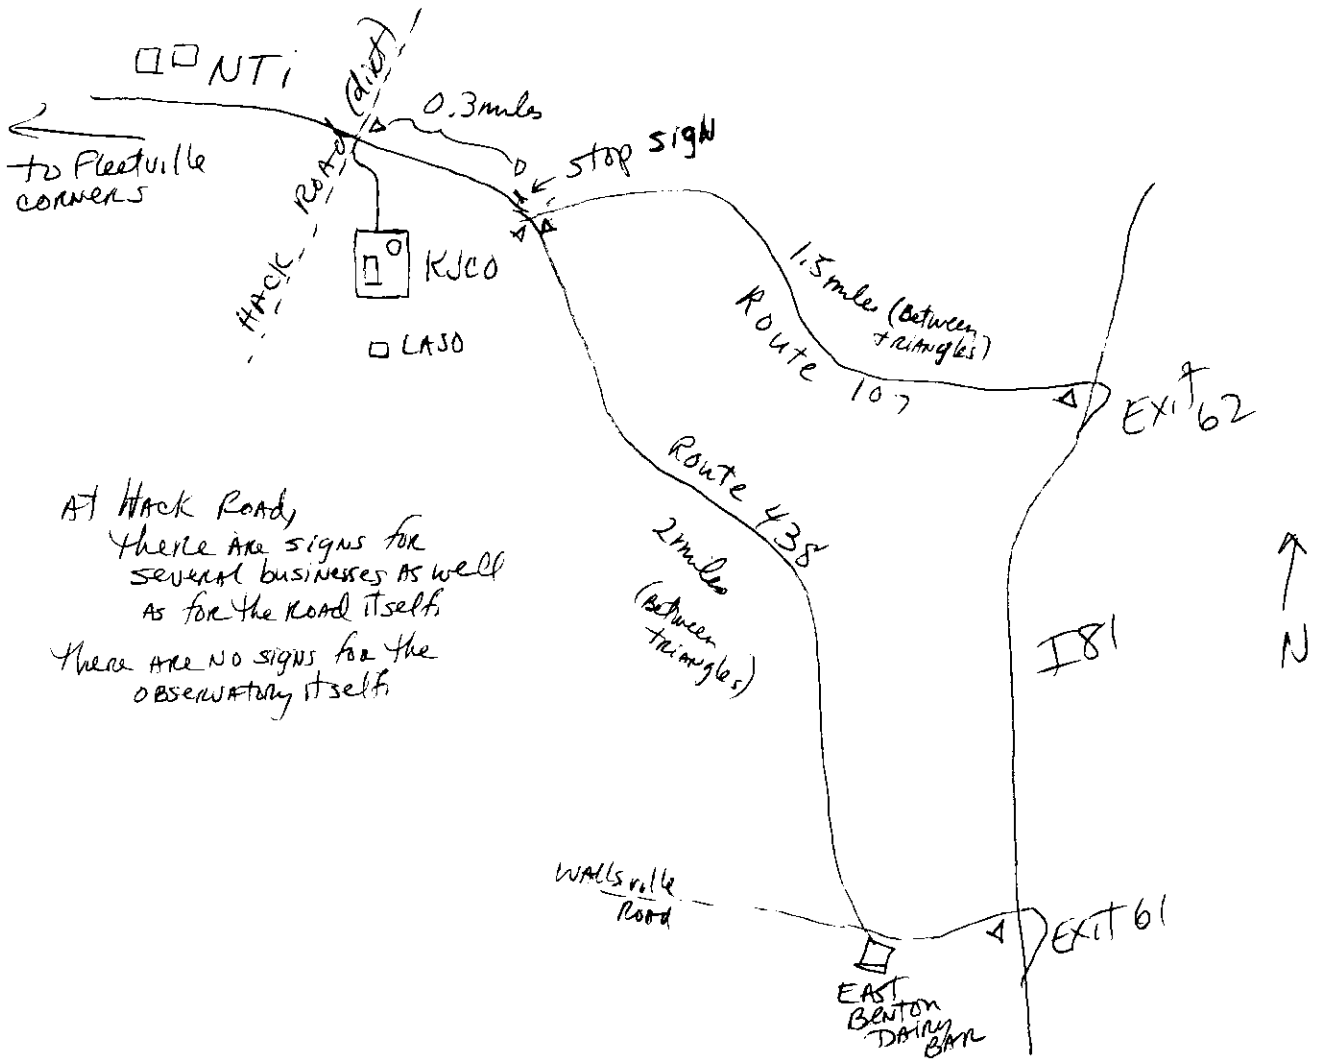 NTi
(dirt)
0.3 miles
stop sign
to Fleetville
corners
HACK ROAD
KJCO
LASO
1.5 miles (Between
triangles)
Route 107
EXIT 62
Route 438
2 miles
(Between
triangles)
At Hack Road,
there are signs for
several businesses as well
as for the road itself.
There are no signs for the
observatory itself.
I81
N
Wallsville
Road
EXIT 61
EAST
BENTON
DAIRY
BAR